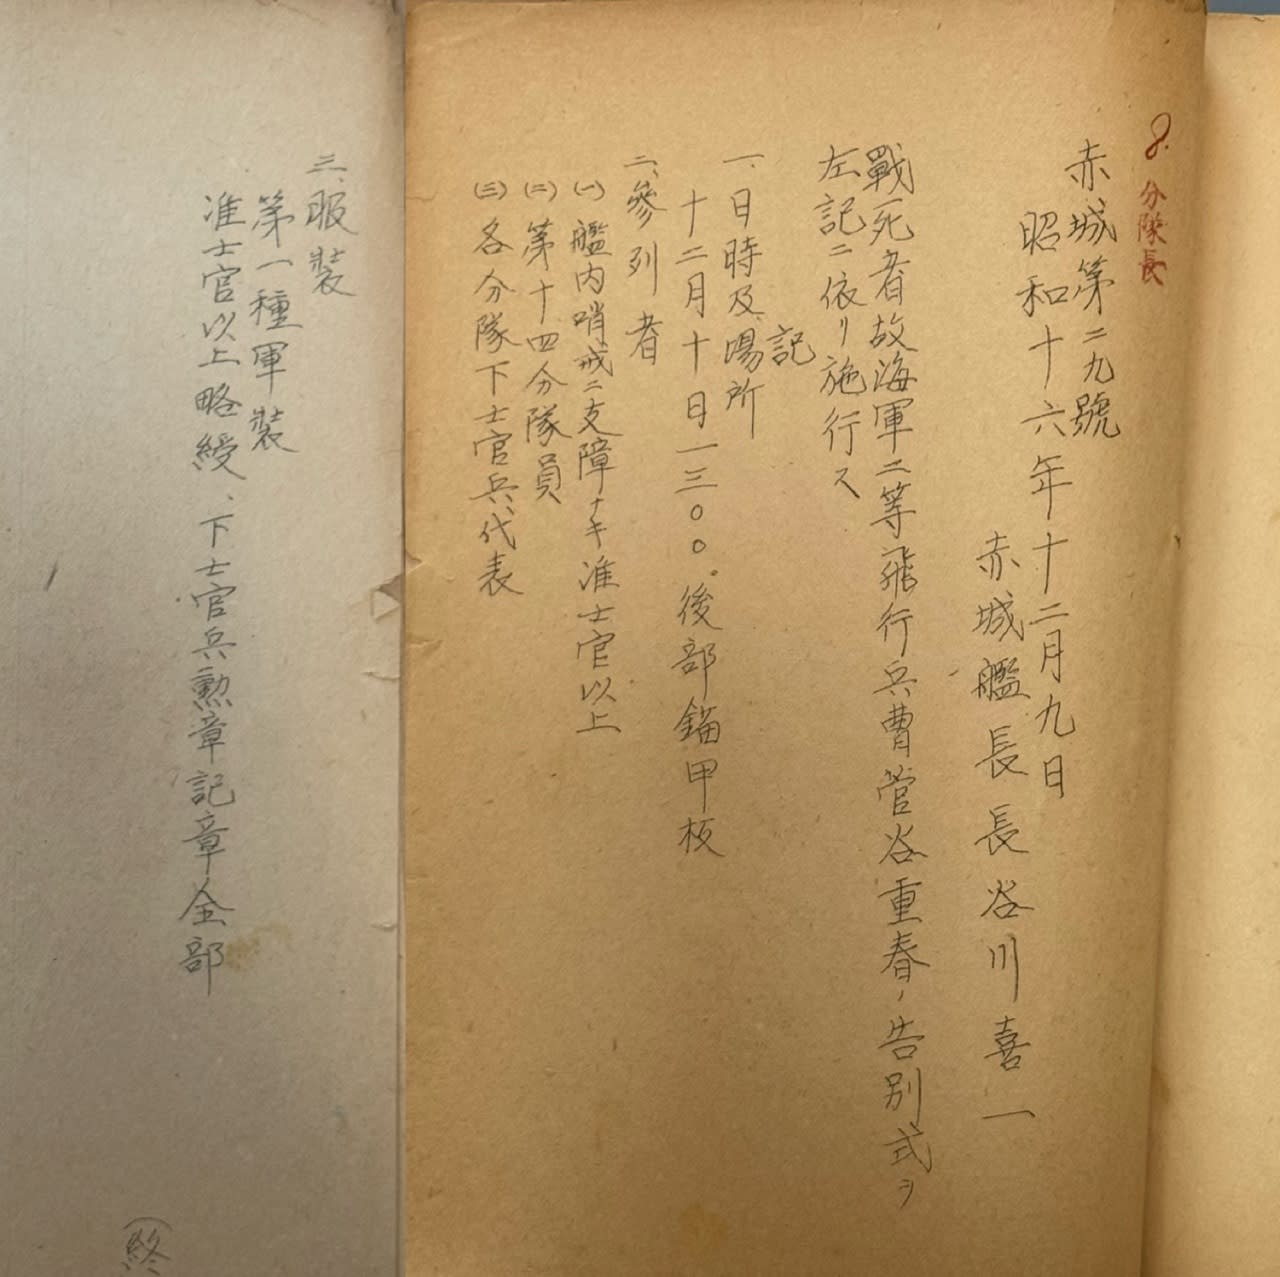 8. 分隊長
赤城第二九號
昭和十六年十二月九日
赤城艦長長谷川喜一
戰死者故海軍二等飛行兵曹菅谷重春ノ告別式ヲ
左記ニ依リ施行ス
記
一、日時及場所
十二月十日一三〇〇。後部錨甲板
二、參列者
(一)艦内哨戒ニ支障ナキ准士官以上
(二)第十四分隊員
(三)各分隊下士官兵代表
三、服装
第一種軍装
准士官以上略綬、下士官兵勲章記章全部
(終)